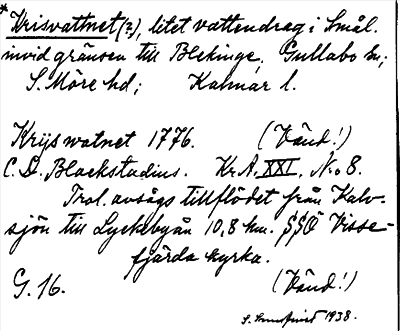 *Krisvattnet(?), litet vattendrag i Smål.
invid gränsen till Blekinge. Gullabo sn;
S. Möre hd; Kalmar l.
Krijswatnet 1776. (Vänd!)
C. D. Blackstadius. Kr.A. XXI, No 8.
Trol. avsågs tillflödet från Kalv-
sjön till Lyckebyån 10,8 km. SSÖ Visse-
fjärda kyrka.
G. 16. (Vänd!)
1938.